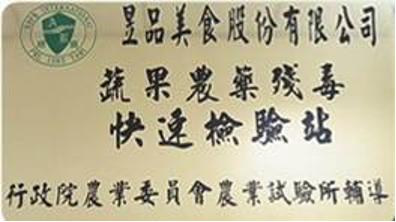 昱品美食股份有限公司
蔬果農藥殘毒
快速檢驗站
行政院農業委員會農業試驗所輔導